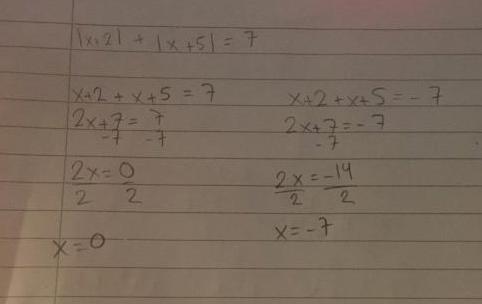 |x+2| + |x+5| = 7
x+2 + x+5 = 7
2x+7 = 7
-7 -7
2x = 0
2 2
x = 0
x+2 + x+5 = -7
2x+7 = -7
-7
2x = -14
2 2
x = -7